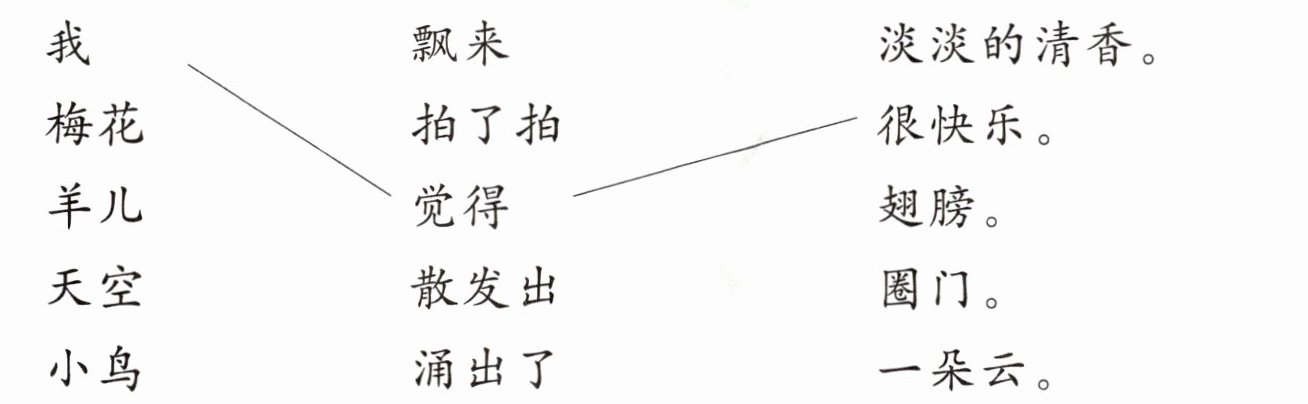 我 飘来 淡淡的清香。
梅花 拍了拍 很快乐。
羊儿 觉得 翅膀。
天空 散发出 圈门。
小鸟 涌出了 一朵云。